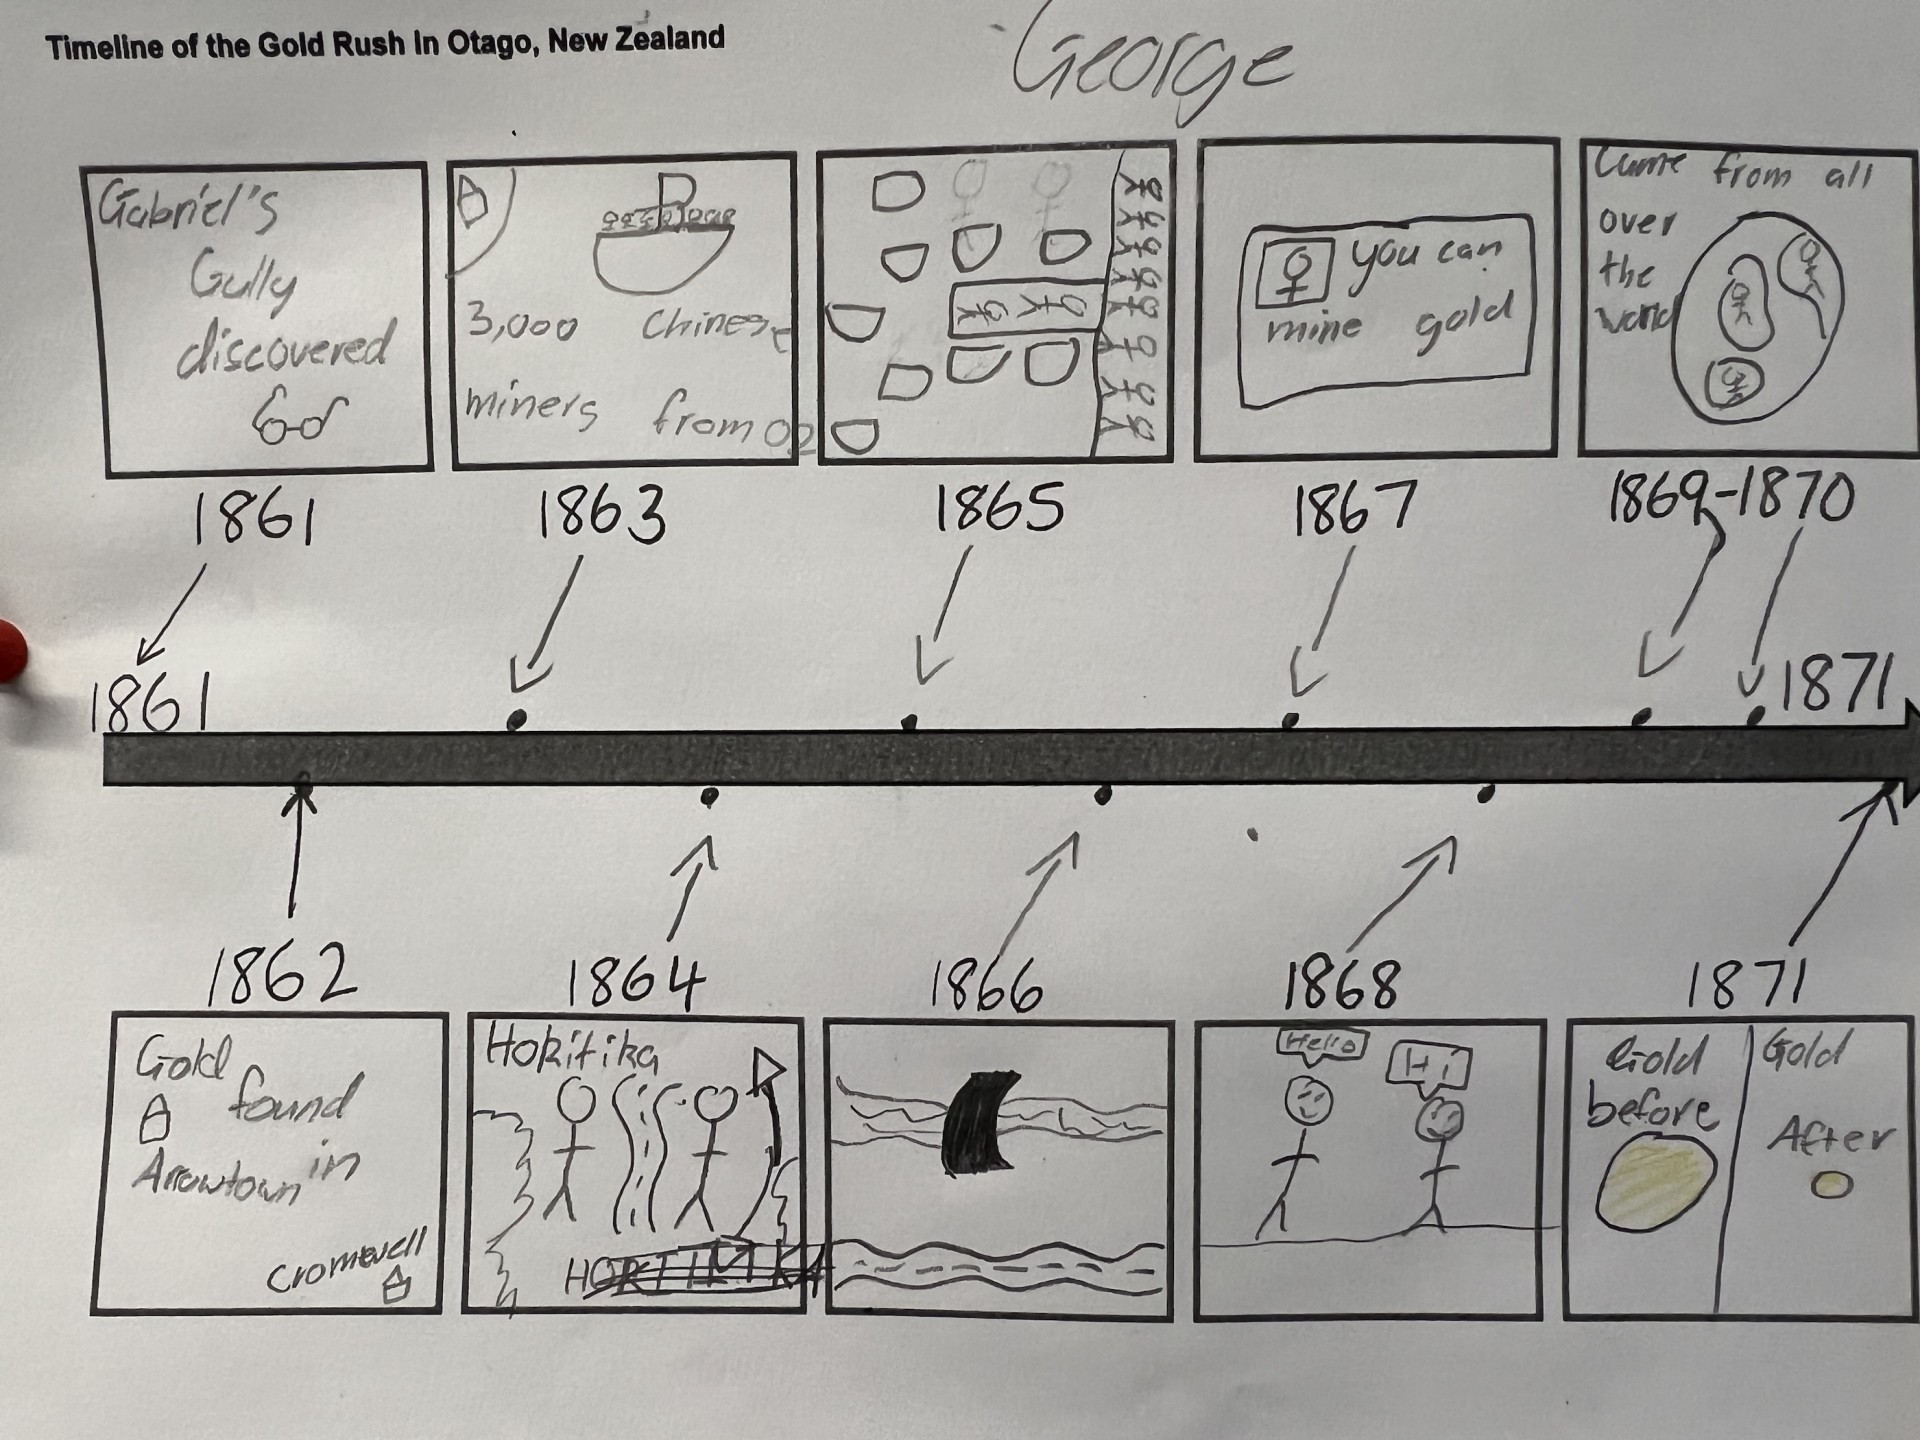 Timeline of the Gold Rush in Otago, New Zealand
George
Gabriel's
Gully
discovered
3,000 Chinese
miners from Oz
you can
mine gold
Came from all
over
the
world
1861
1863
1865
1867
1869-1870
1861
1871
1862
1864
1866
1868
1871
Gold
found
Arrowtown in
Cromwell
Hokitika
HOKITIKA
Hello
Hi
Gold
before
Gold
After